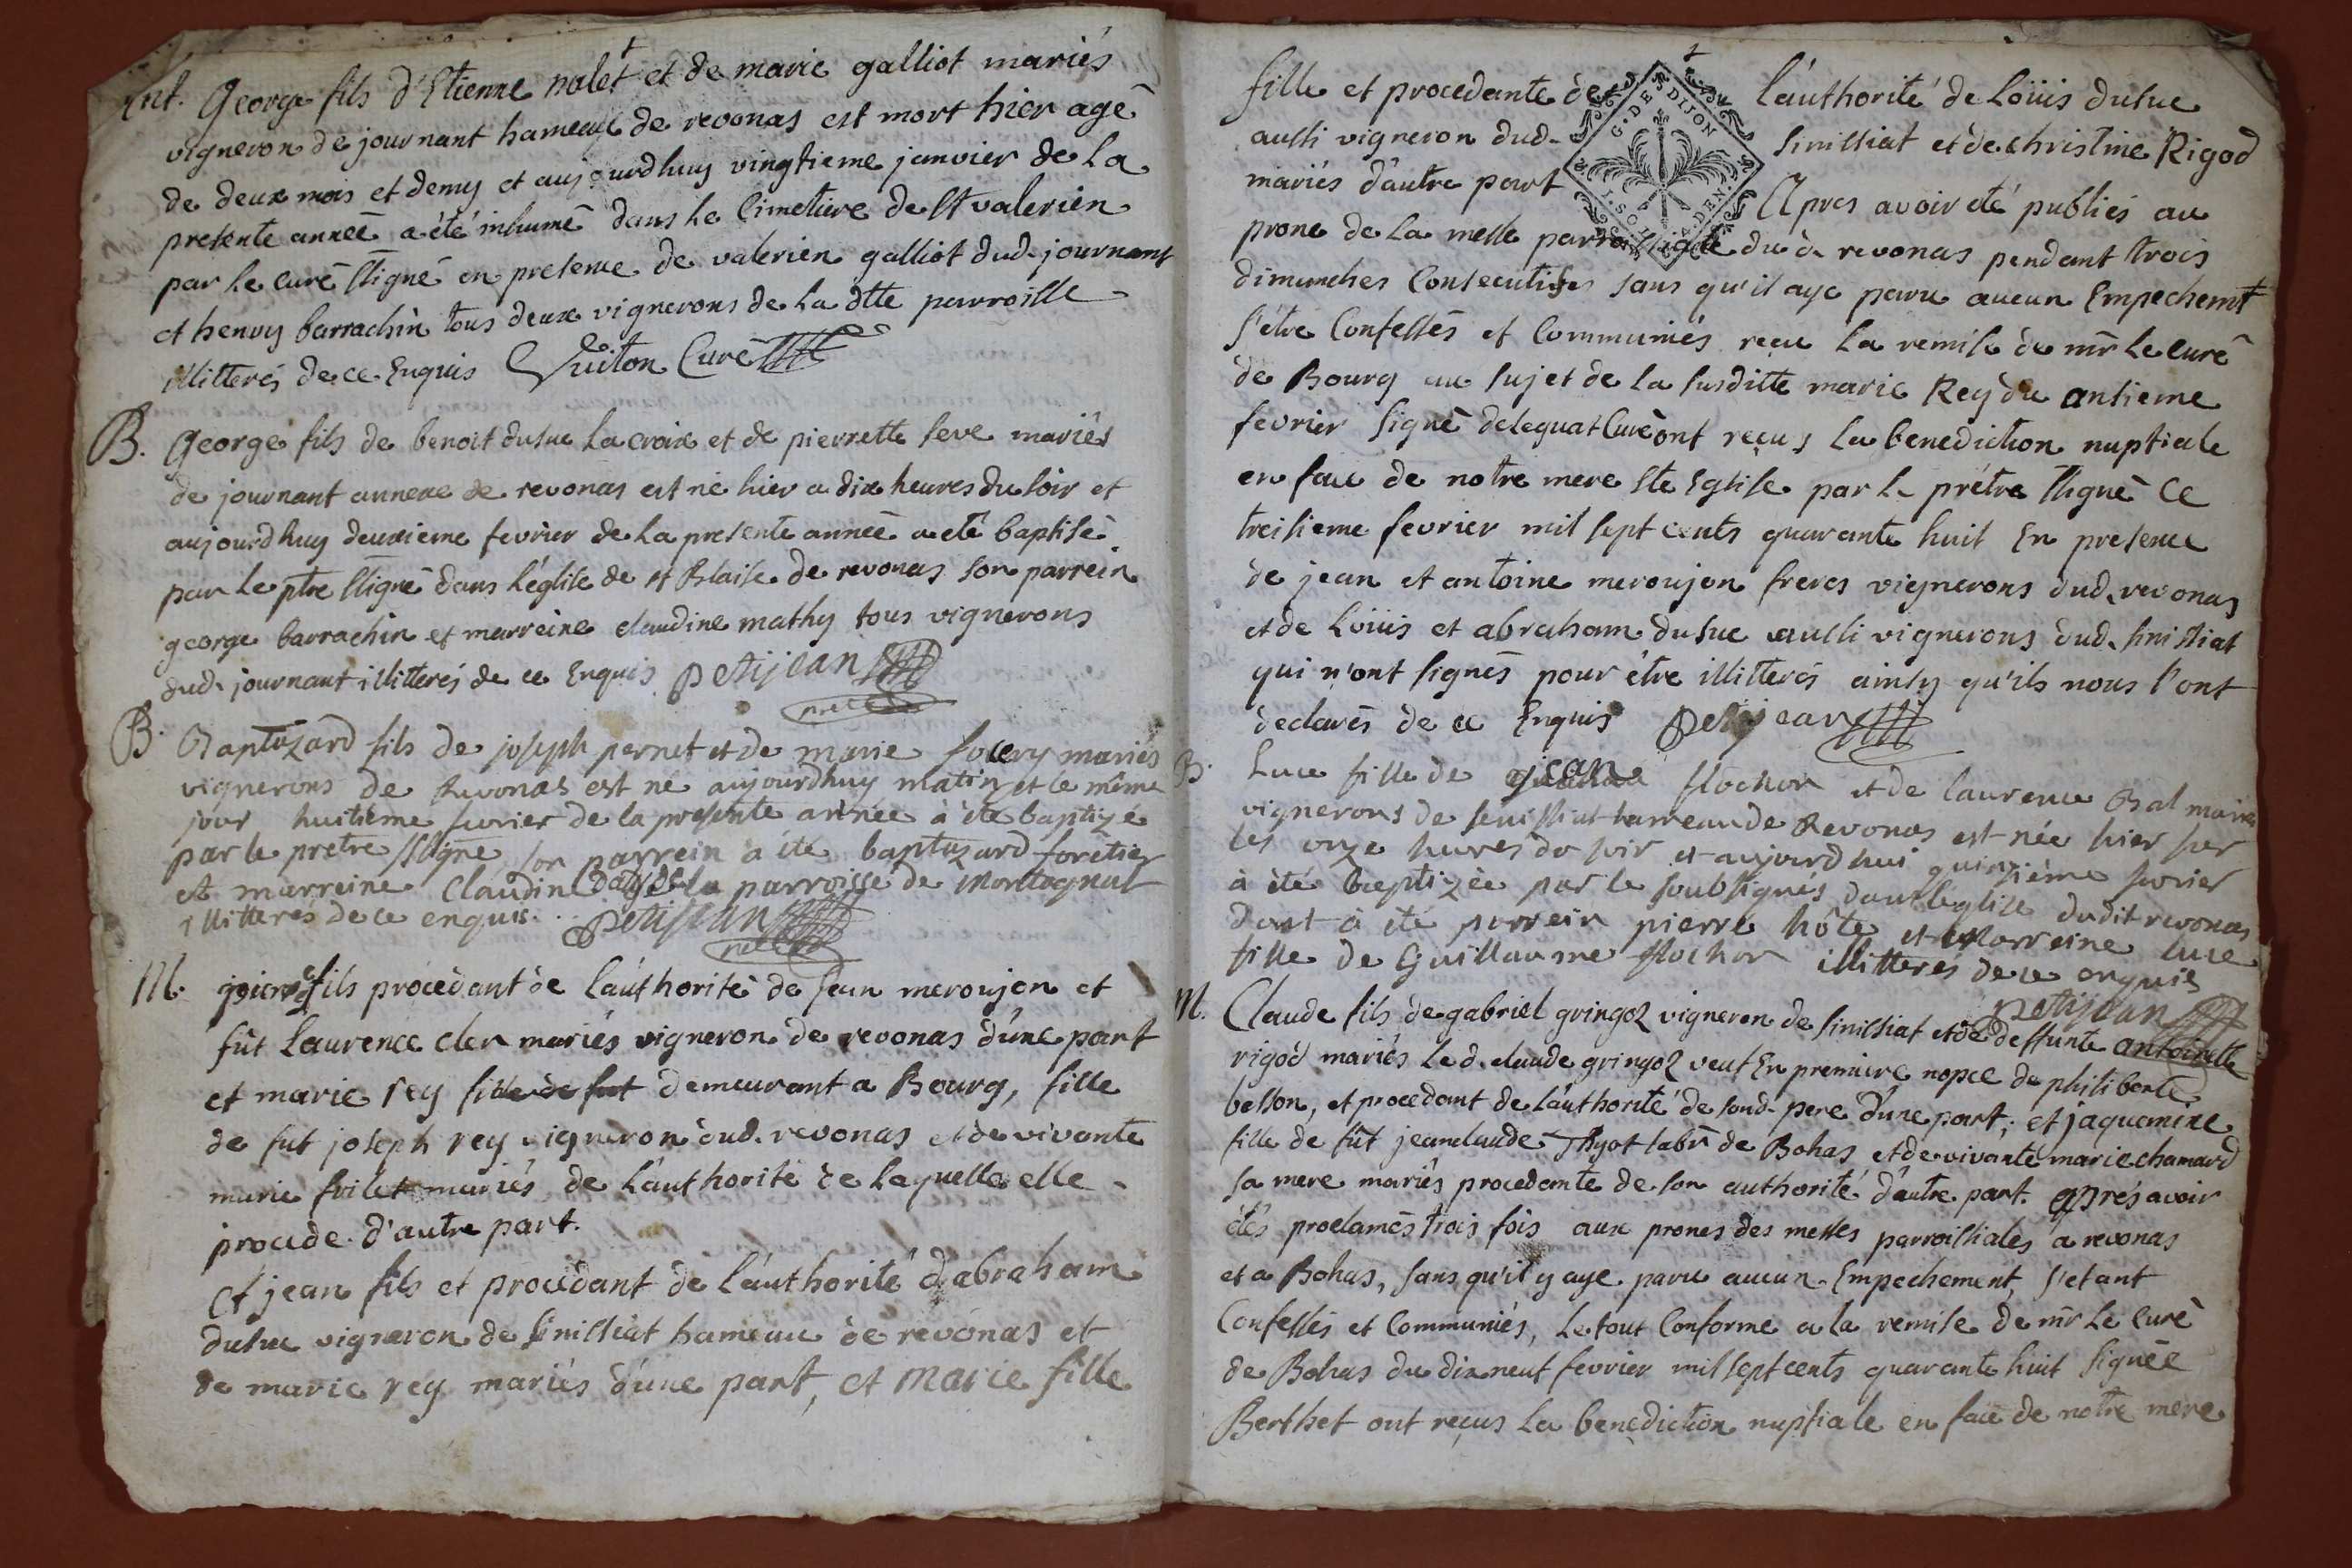 Ent. George fils d'Etienne nalet et de marie galliot mariés
vigneron de journant hameau de revonas est mort hier agé
de deux mois et demy et aujourdhuy vingtieme janvier de la
presente année a été inhumé dans le Cimetiere de St valerien
par le curé ssigné en presence de valerien galliot dud. journant
et henry barrachin tous deux vignerons de la dtte parroisse
illitterés de ce Enquis Guiton Curé
B. George fils de benoit dusuc Lacroix et de pierrette seve mariés
de journant annexe de revonas est né hier a dix heures du soir et
aujourdhuy deuxieme fevrier de la presente année a eté baptisé
par le ptre ssigné dans l'église de st Blaise de revonas son parrein
george barrachin et marreine claudine mathy tous vignerons
dud. journant illitterés de ce Enquis petijean
B. Baptazard fils de joseph pernet et de marie mariés
vignerons de Revonas est né aujourdhuy matin et le même
jour huitième fevrier de la presente année à eté baptizé
par le pretre ssigné son parrein à été baptazard foretier
et marreine Claudine de la parroisse de Montagnat
illitterés de ce enquis. petijean
M. fils procedant de l'authorité de Jean meroujon et
fût Laurence cler mariés vigneron de revonas d'une part
et marie rey fille de fut demeurant a Bourg, fille
de fut joseph rey vigneron dud. revonas et de vivante
marie frilet mariés de l'authorité de laquelle elle
procede d'autre part.
Et jean fils et procedant de l'authorité d'abraham
dusuc vigneron de sinissiat hameau de revonas et
de marie rey mariés d'une part, et marie fille
fille et procedante de l'authorité de Loüis dusuc
G. DES DIJON
aussi vigneron dud. sinissiat et de christine Rigod
mariés d'autre part Apres avoir été publiés au
prone de la messe parroissiale du d. revonas pendant trois
dimanches Consecutifs sans qu'il aye paru aucun Empechemt
s'être Confessés et Communiés reçu la remise de mr le curé
de Bourg au sujet de la susditte marie Rey du onsieme
fevrier signé delaquat Curé ont reçus la benediction nuptiale
en face de notre mere Ste Eglise par le prétre ssigné Ce
treisieme fevrier mil sept cents quarante huit En presence
de jean et antoine meroujon freres vignerons dud. revonas
et de Loüis et abraham dusuc aussi vignerons dud. sinissiat
qui n'ont signés pour être illitterés ainsy qu'ils nous l'ont
declarés de ce Enquis petijean
B. Luce fille de jean flochon et de laurence Bal mariés
vignerons de senissiat hameau de Revonas est née hier sur
les onze heures du soir et aujourd'hui quinzième fevrier
à été baptizée par le soubsignés dans l'église dudit revonas
dont à eté parrein pierre hôte et Marreine luce
fille de Guillaume flochon illitterés de ce enquis
petijean
M. Claude fils de gabriel gringoz vigneron de sinissiat et de deffunte antoinette
rigod mariés le d. claude gringoz veuf En premiere nopce de philiberte
besson, et procedant de l'authorité de soud. pere d'une part; et jaquemine
fille de fût jeanclaude Thyot labr de Bohas et de vivante marie chamard
sa mere mariés procedante de son authorité d'autre part. aprés avoir
étés proclamés trois fois aux prones des messes parroissiales a revonas
et a Bohas, sans qu'il y aye paru aucun Empechement, s'etant
Confessés et Communiés, le tout Conforme a la remise de mr le Curé
de Bohas du dix neuf fevrier mil sept cents quarante huit signée
Berthet ont reçus la benediction nuptiale en face de notre mere